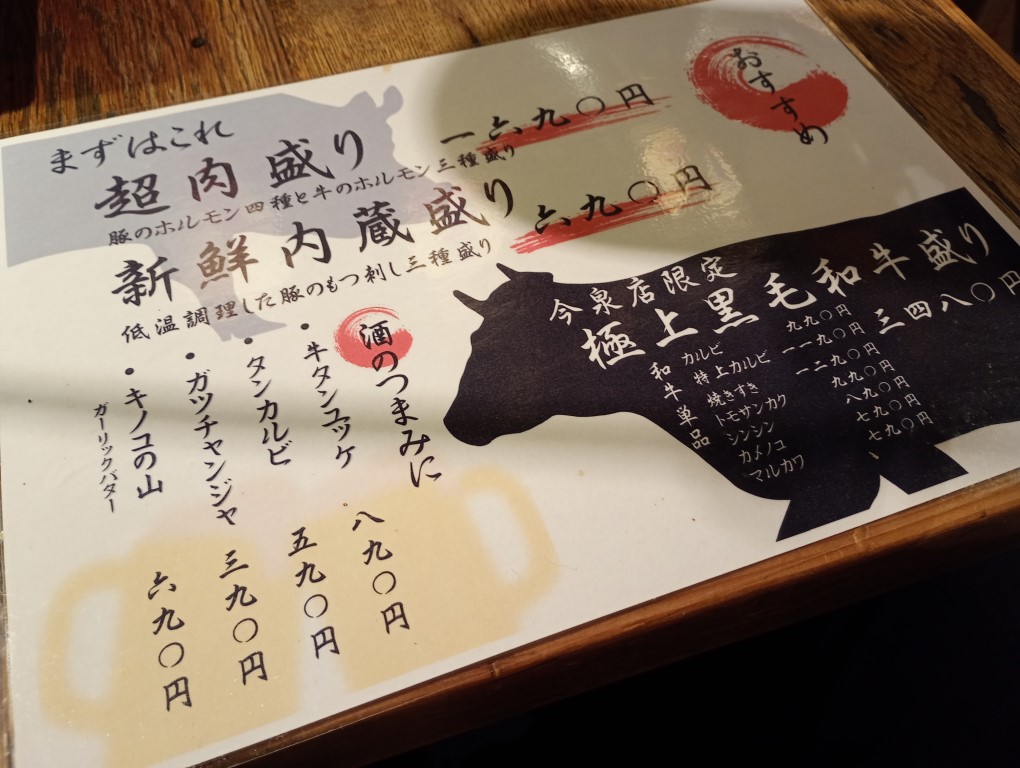 おすすめ
まずはこれ
超肉盛り 一六九〇円
豚のホルモン四種と牛のホルモン三種盛り
新鮮内蔵盛り 六九〇円
低温調理した豚のもつ刺し三種盛り
今泉店限定
極上黒毛和牛盛り 三四八〇円
和牛単品
カルビ 九九〇円
特上カルビ 一一九〇円
焼きすき 一二九〇円
トモサンカク 九九〇円
シンシン 八九〇円
カメノコ 七九〇円
マルカワ 七九〇円
酒のつまみに
・牛タンユッケ 八九〇円
・タンカルビ 五九〇円
・ガツチャンジャ 三九〇円
・キノコの山 六九〇円
ガーリックバター